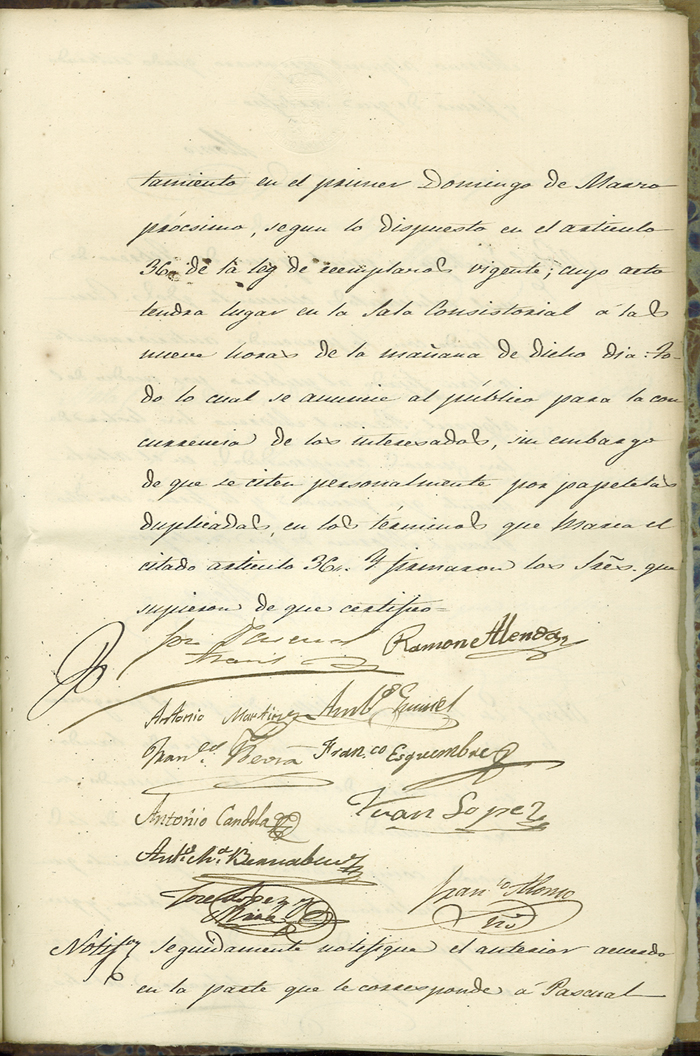 tamiento en el primer Domingo de Marzo
prócsimo, segun lo dispuesto en el articulo
36. de la ley de reemplazos vigente; cuyo acto
tendra lugar en la Sala Consistorial á las
nueve horas de la mañana de dicho dia. To-
do lo cual se anuncie al público para la con
currencia de los interesados, sin embargo
de que se citen personalmente por papeletas
duplicadas, en los términos que marca el
citado articulo 36. Y firmaron los Sres. que
supieron de que certifico=
Pascual
Ramon Alenda
Antonio Martinez
Fran.co Esquembre
Antonio Candela
Juan Lopez
Bernabeu
Jose Lopez
Fran.co Alonso
Srio
Notif.on Seguidamente notifiqué el anterior acuerdo
en la parte que le corresponde á Pascual